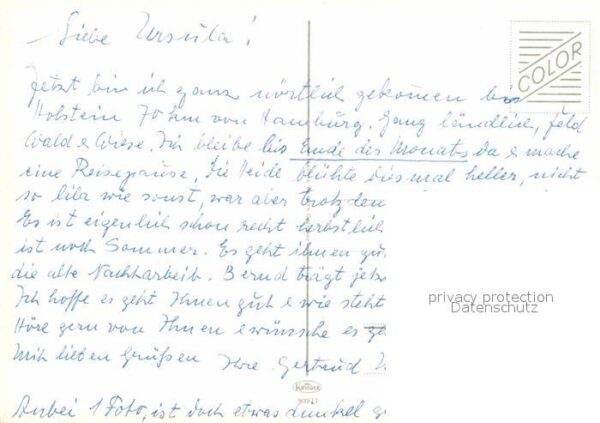 Liebe Ursula!
COLOR
Jetzt bin ich ganz nörtlich gekommen bis
Holstein 70 km von Hamburg. Ganz ländlich, Feld
Wald & Wiese. Ich bleibe bis Ende des Monats da & mache
eine Reisepause. Die Heide blühte diesmal heller, nicht
so lila wie sonst, war aber trotzdem
Es ist eigenlich schon recht herbstlich
ist noch Sommer. Es geht ihnen gut
die alte Nachharbeit. Bernd trägt jetz
Ich hoffe es geht Ihnen gut & wie steht
privacy protection
Datenschutz
Höre gern von Ihnen & wünsche es ge
Mit lieben Grüßen Ihre Gertrud
Krüger
Anbei 1 Foto, ist doch etwas dunkel g